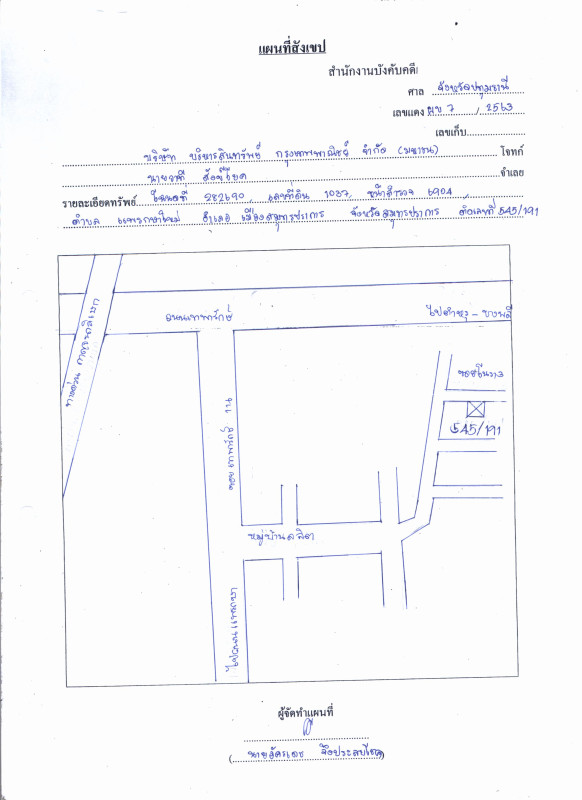 แผนที่สังเขป
สำนักงานบังคับคดี
ศาล จังหวัดปทุมธานี
เลขแดง ผบ 7 / 2563
เลขเก็บ
บริษัท บริหารสินทรัพย์ กรุงเทพพาณิชย์ จำกัด (มหาชน) โจทก์
จำเลย
รายละเอียดทรัพย์ โฉนดที่ 282690 เลขที่ดิน 1037 หน้าสำรวจ 6904
ตำบล แพรกษาใหม่ อำเภอ เมืองสมุทรปราการ จังหวัดสมุทรปราการ ติดเลขที่ 545/191
ทางด่วน กาญจนาภิเษก
ถนนเทพารักษ์
ไปตำหรุ - บางพลี
ซอย
545/191
ซอย เทพารักษ์
หมู่บ้านลลิตา
ไปถนนแพรกษา
ผู้จัดทำแผนที่